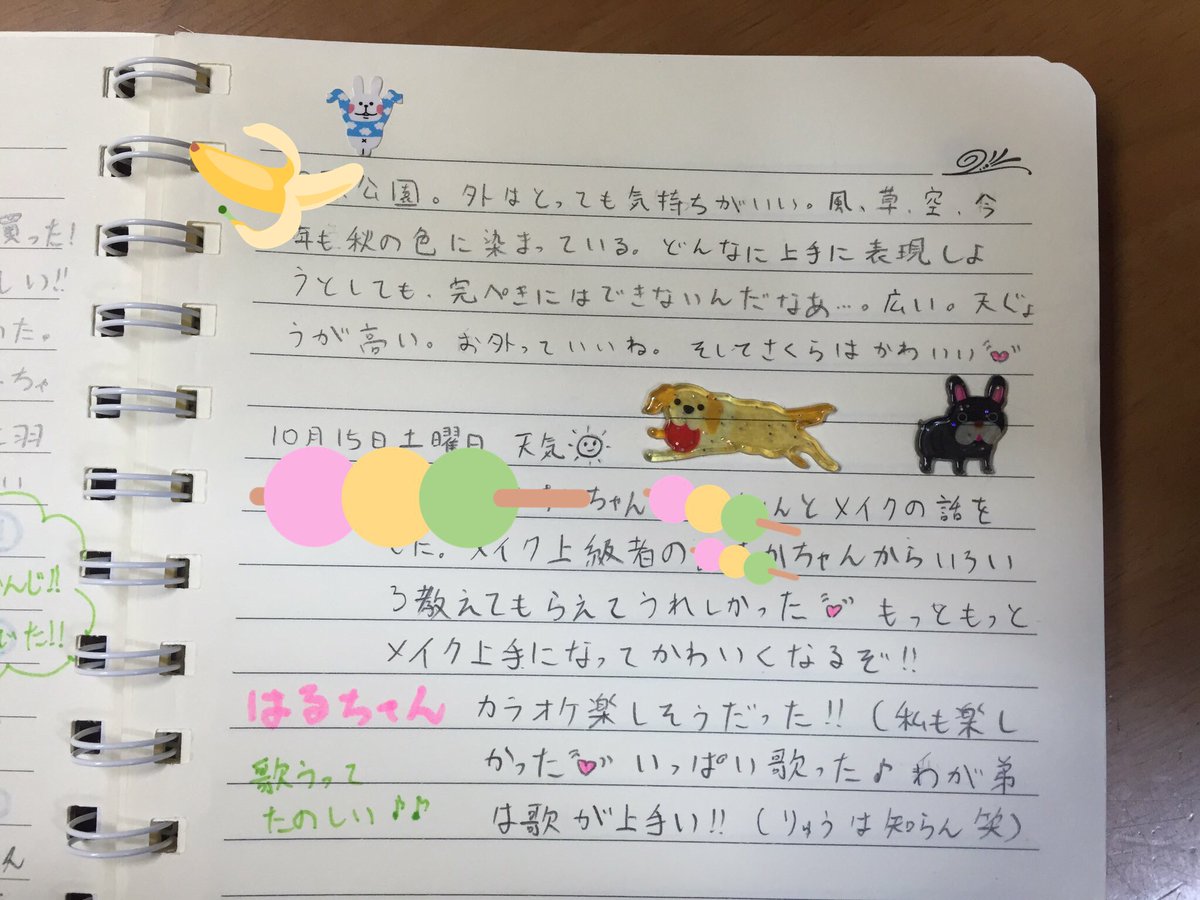 買った!
しい!!
った。
ちゃ
羽
い
んじ!!
でた!!
ん
公園。外はとっても気持ちがいい。風、草、空、今
年も秋の色に染まっている。どんなに上手に表現しよ
うとしても、完ぺきにはできないんだなあ…。広い。天じょ
うが高い。お外っていいね。そしてさくらはかわいい
10月15日土曜日 天気
ちゃん んとメイクの話を
した。メイク上級者の かちゃんからいろい
ろ教えてもらえてうれしかった もっともっと
メイク上手になってかわいくなるぞ!!
はるちゃん カラオケ楽しそうだった!!(私も楽し
かった いっぱい歌った♪ わが弟
歌うって
たのしい♪♫ は歌が上手い!!(りゅうは知らん笑)